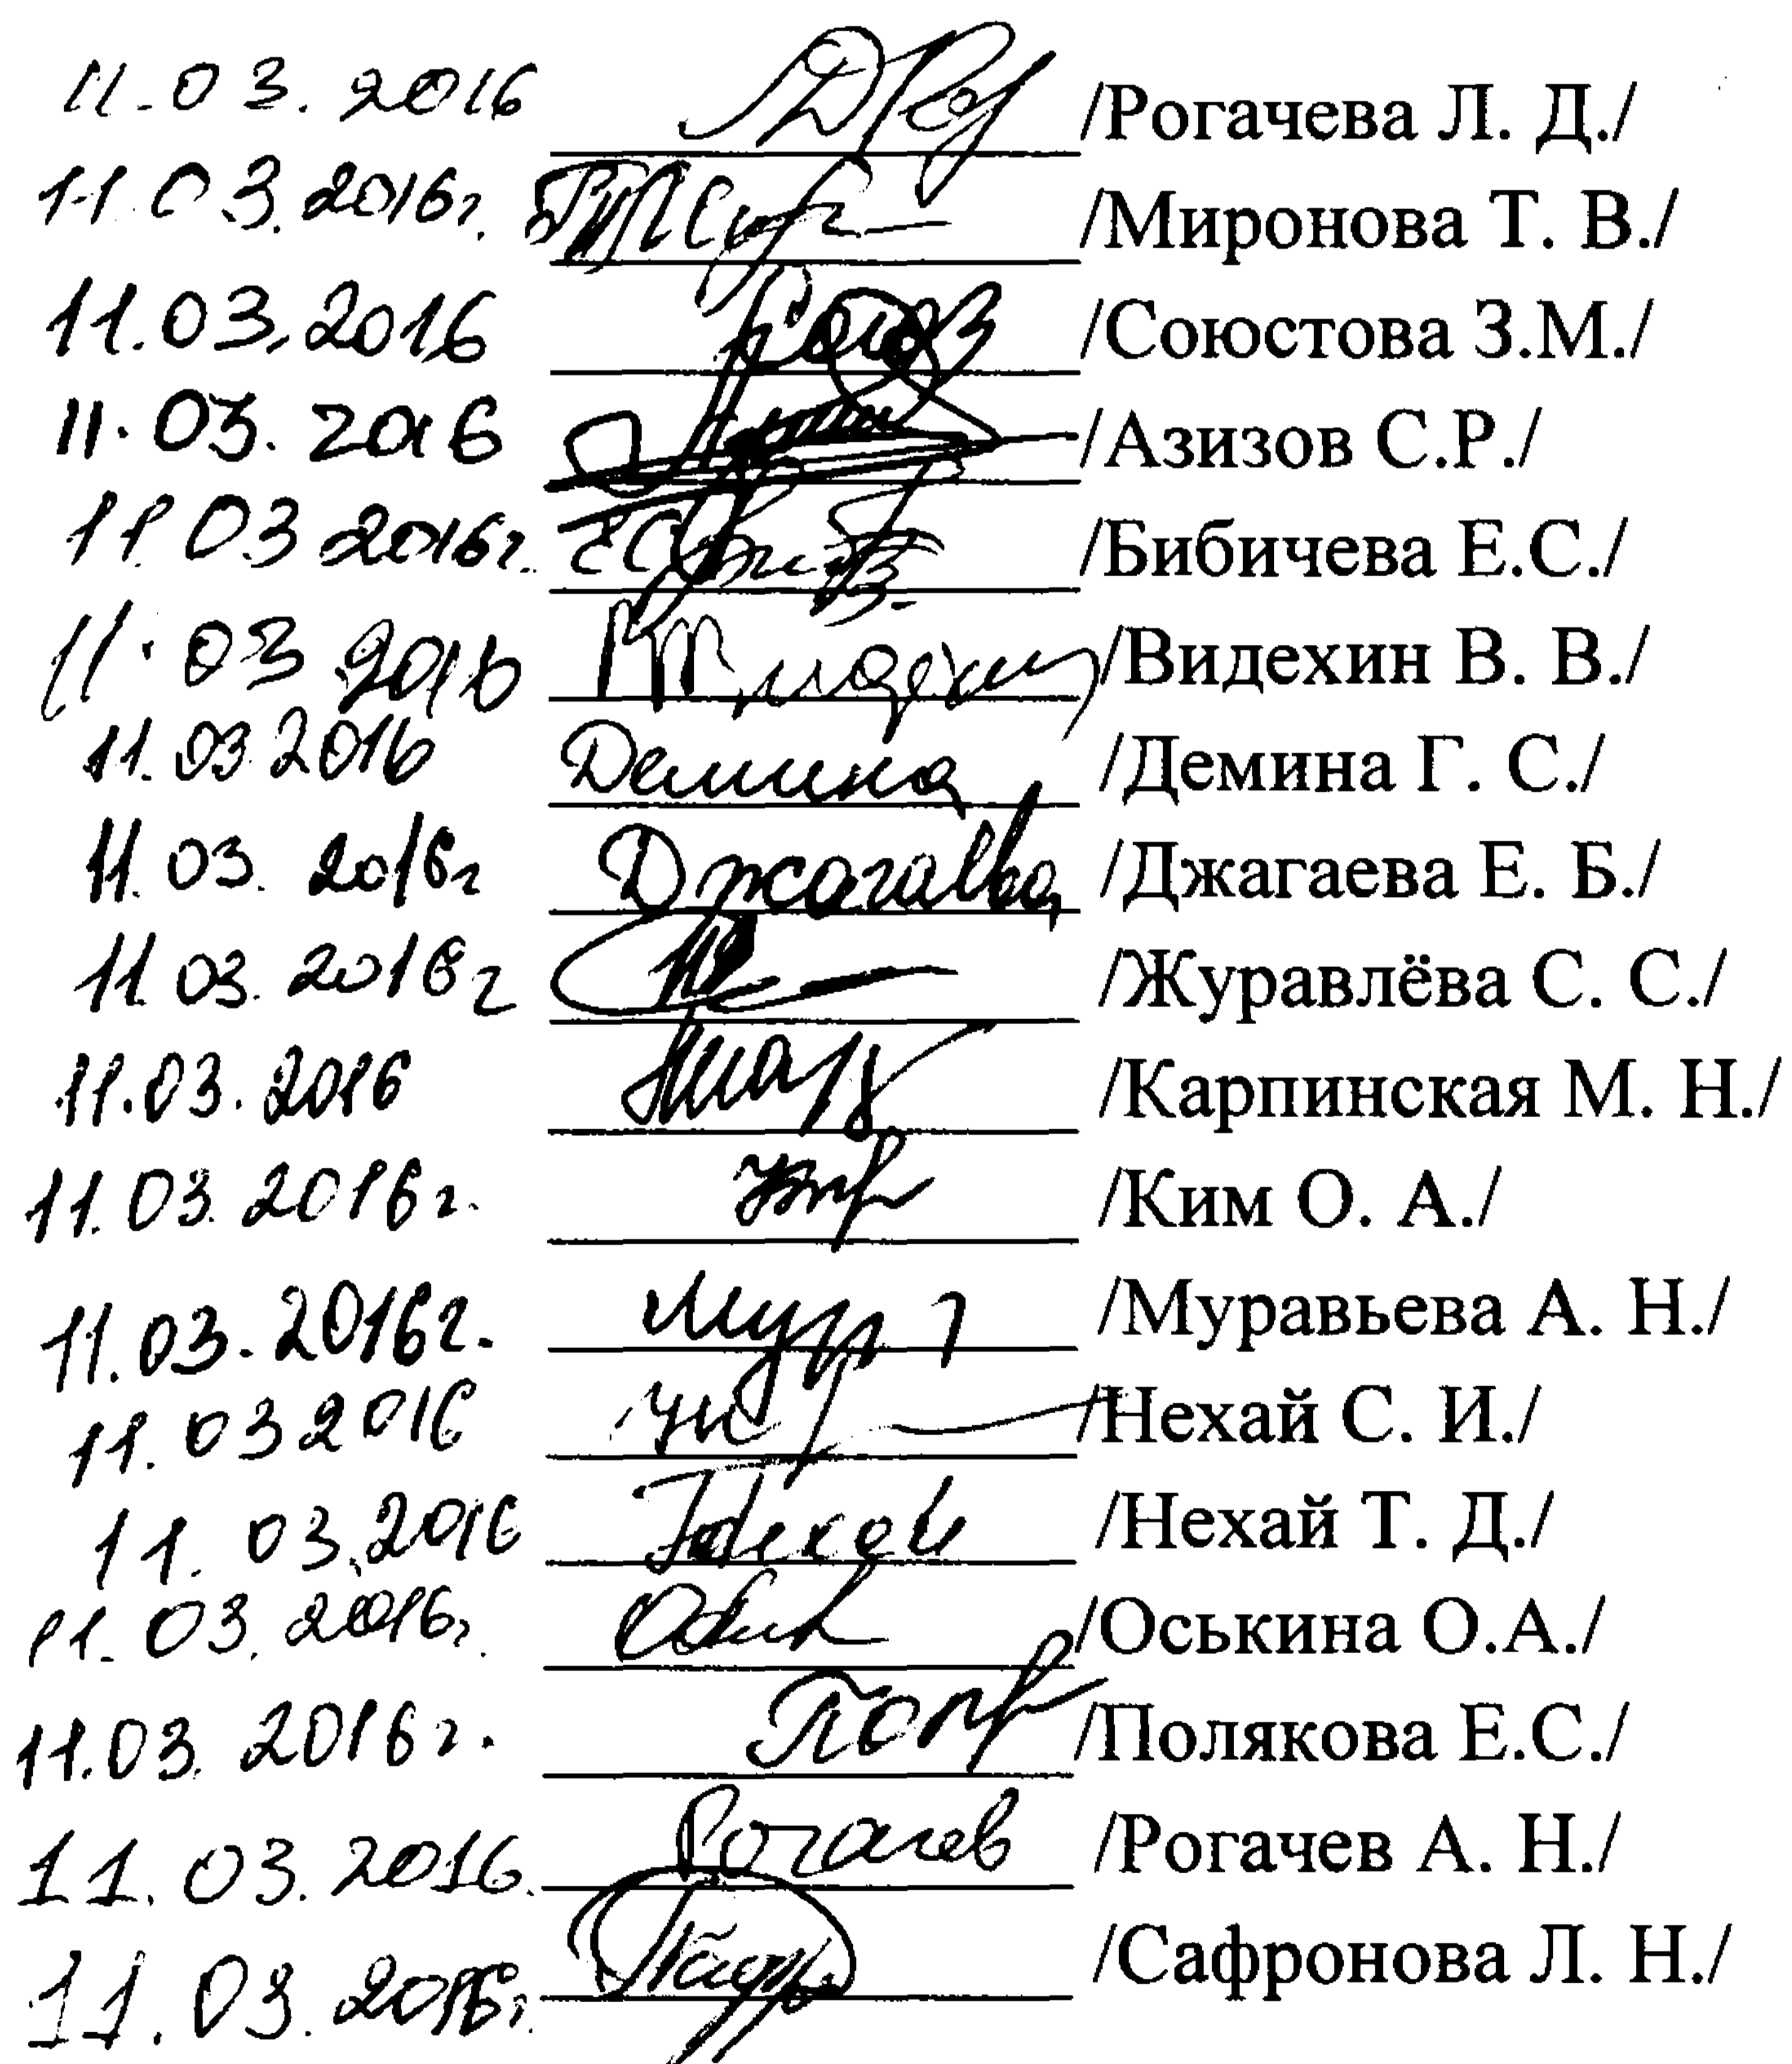 11.03.2016 /Рогачева Л. Д./
11.03.2016г. /Миронова Т. В./
11.03.2016 /Союстова З.М./
11.03.2016 /Азизов С.Р./
11.03 2016г. /Бибичева Е.С./
11.03 2016 Видехин /Видехин В. В./
11.03 2016 Демина /Демина Г. С./
11.03. 2016г Джагаева /Джагаева Е. Б./
11.03. 2016г /Журавлёва С. С./
11.03.2016 /Карпинская М. Н./
11.03.2016г. /Ким О. А./
11.03.2016г. /Муравьева А. Н./
11.03 2016 /Нехай С. И./
11.03.2016 /Нехай Т. Д./
11.03.2016г. /Оськина О.А./
11.03.2016г. /Полякова Е.С./
11.03.2016. Рогачев /Рогачев А. Н./
11.03.2016г. /Сафронова Л. Н./